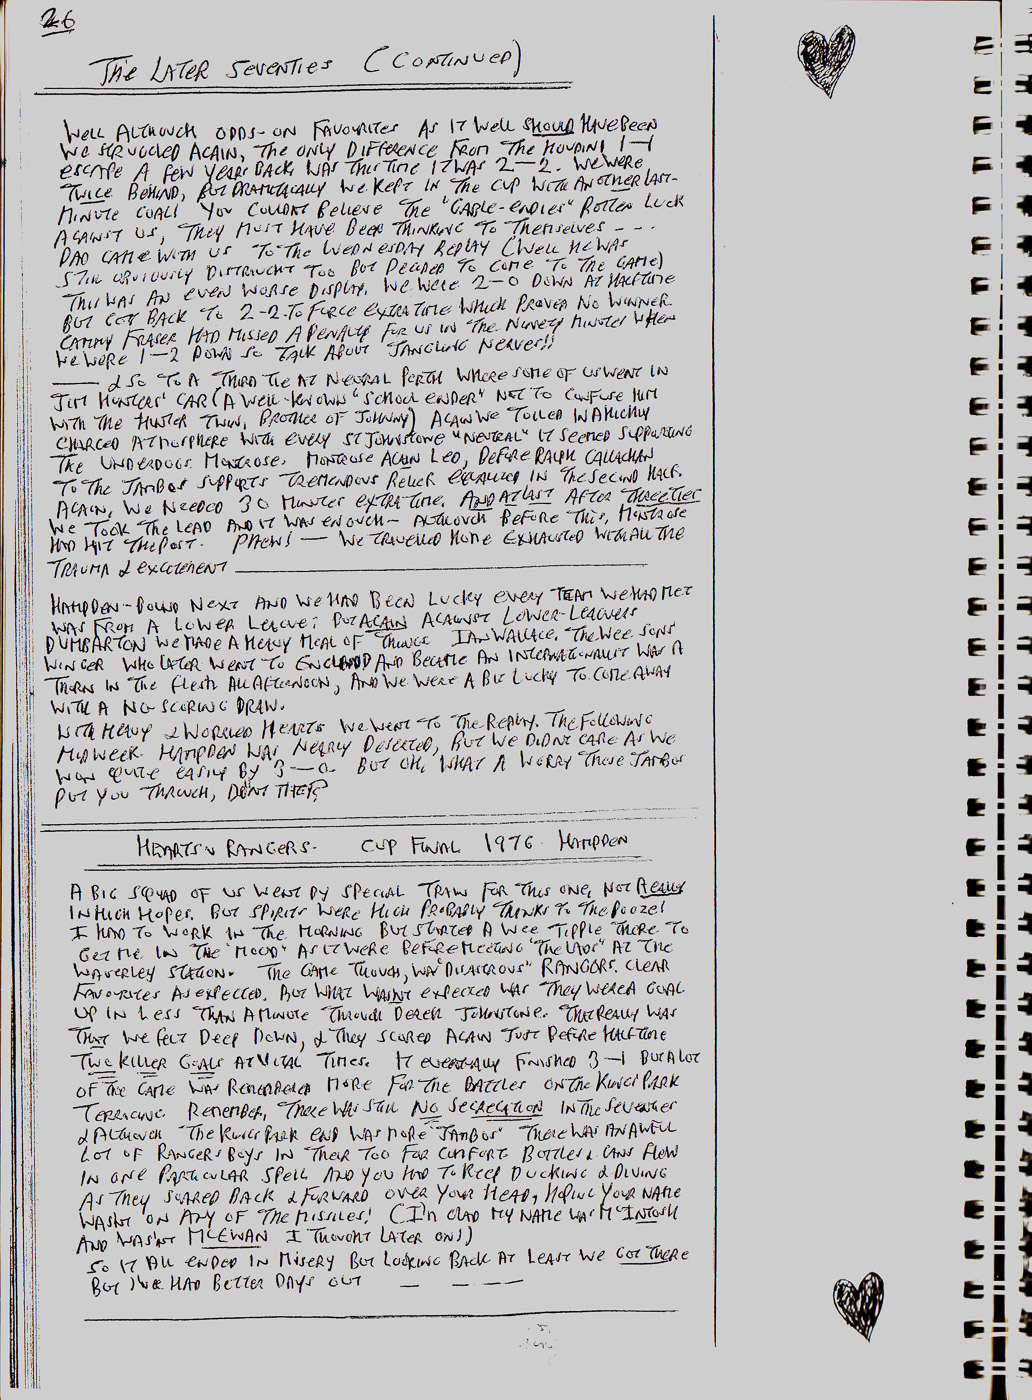 26
The Later Seventies (Continued)
Well although odds-on favourites as it well should have been
we struggled again, the only difference from the Houdini 1-1
escape a few years back was this time it was 2-2. We were
twice behind, but dramatically we kept in the cup with another last-
minute goal! You couldnt believe the "Gable-endies" rotten luck
against us, they must have been thinking to themselves - - -
Dad came with us to the Wednesday replay (well he was
still obviously distraught too but decided to come to the game)
This was an even worse display. We were 2-0 down at halftime
but got back to 2-2 to force extra time which proved no winner
Cammy Fraser had missed a penalty for us in the ninety minutes when
we were 1-2 down so talk about jangling nerves!!
—— & so to a third tie at neutral Perth where some of us went in
Jim Hunters' car (a well-known "school ender" not to confuse him
with the Hunter twin, brother of Johnny) Again we toiled in a highly
charged atmosphere with every St Johnstone "neutral" it seemed supporting
the underdogs Montrose. Montrose again led, before Ralph Callachan
to the Jambos supports tremendous relief equalized in the second half.
Again, we needed 30 minutes extra time. And at last after three ties
we took the lead and it was enough - although before this, Montrose
had hit the post. Phew! — We travelled home exhausted with all the
trauma & excitement
Hampden-bound next and we had been lucky every team we had met
was from a lower league: but again against lower-leaguers
Dumbarton we made a heavy meal of things. Ian Wallace, the wee Sons
winger who later went to England and became an internationalist was a
thorn in the flesh all afternoon, and we were a bit lucky to come away
with a no-scoring draw.
With heavy & worried hearts we went to the replay. The following
midweek. Hampden was nearly deserted, but we didnt care as we
won quite easily by 3-0. But oh, what a worry those Jambos
put you through, dont they?
Hearts v Rangers. Cup Final 1976 Hampden
A big squad of us went by special train for this one, not really
in high hopes. But spirits were high probably thanks to the booze!
I had to work in the morning but started a wee tipple there to
get me in the "mood" as it were before meeting "the lads" at the
Waverley Station. The game though, was "disastrous" Rangers. clear
favourites as expected. But what wasnt expected was they were a goal
up in less than a minute through Derek Johnstone. That really was
that we felt deep down, & they scored again just before halftime
Two killer goals at vital times. It eventually finished 3-1 but a lot
of the game was remembered more for the battles on the Kings Park
terracing. Remember, there was still no segregation in the seventies
& although the Kings Park end was more "Jambos" there was an awful
lot of Rangers boys in their too for comfort Bottles & cans flew
in one particular spell and you had to keep ducking & diving
as they soared back & forward over your head, hoping your name
wasnt on any of the missiles! (I'm glad my name was McIntosh
and wasn't McEwan I thought later on!)
So it all ended in misery but looking back at least we got there
but we had better days out — — —